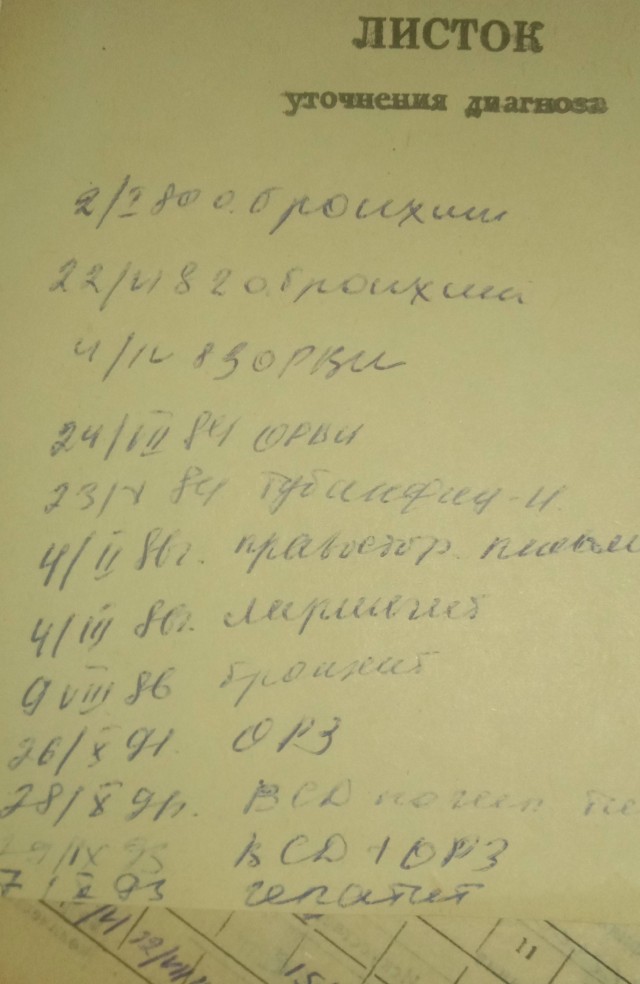 ЛИСТОК
уточнения диагноза
2/I 80 о. бронхит
22/VI 82 о. бронхит
4/IV 83 ОРВИ
24/VII 84 ОРВИ
23/X 84 Тубинфиц-н.
4/II 86г. правостор.
4/III 86г. ларингит
9 VIII 86 бронхит
26/X 91. ОРЗ
28/X 91г. ВСД
IX 93 ВСД + ОРЗ
7 93 гепатит
22/VII
11
15